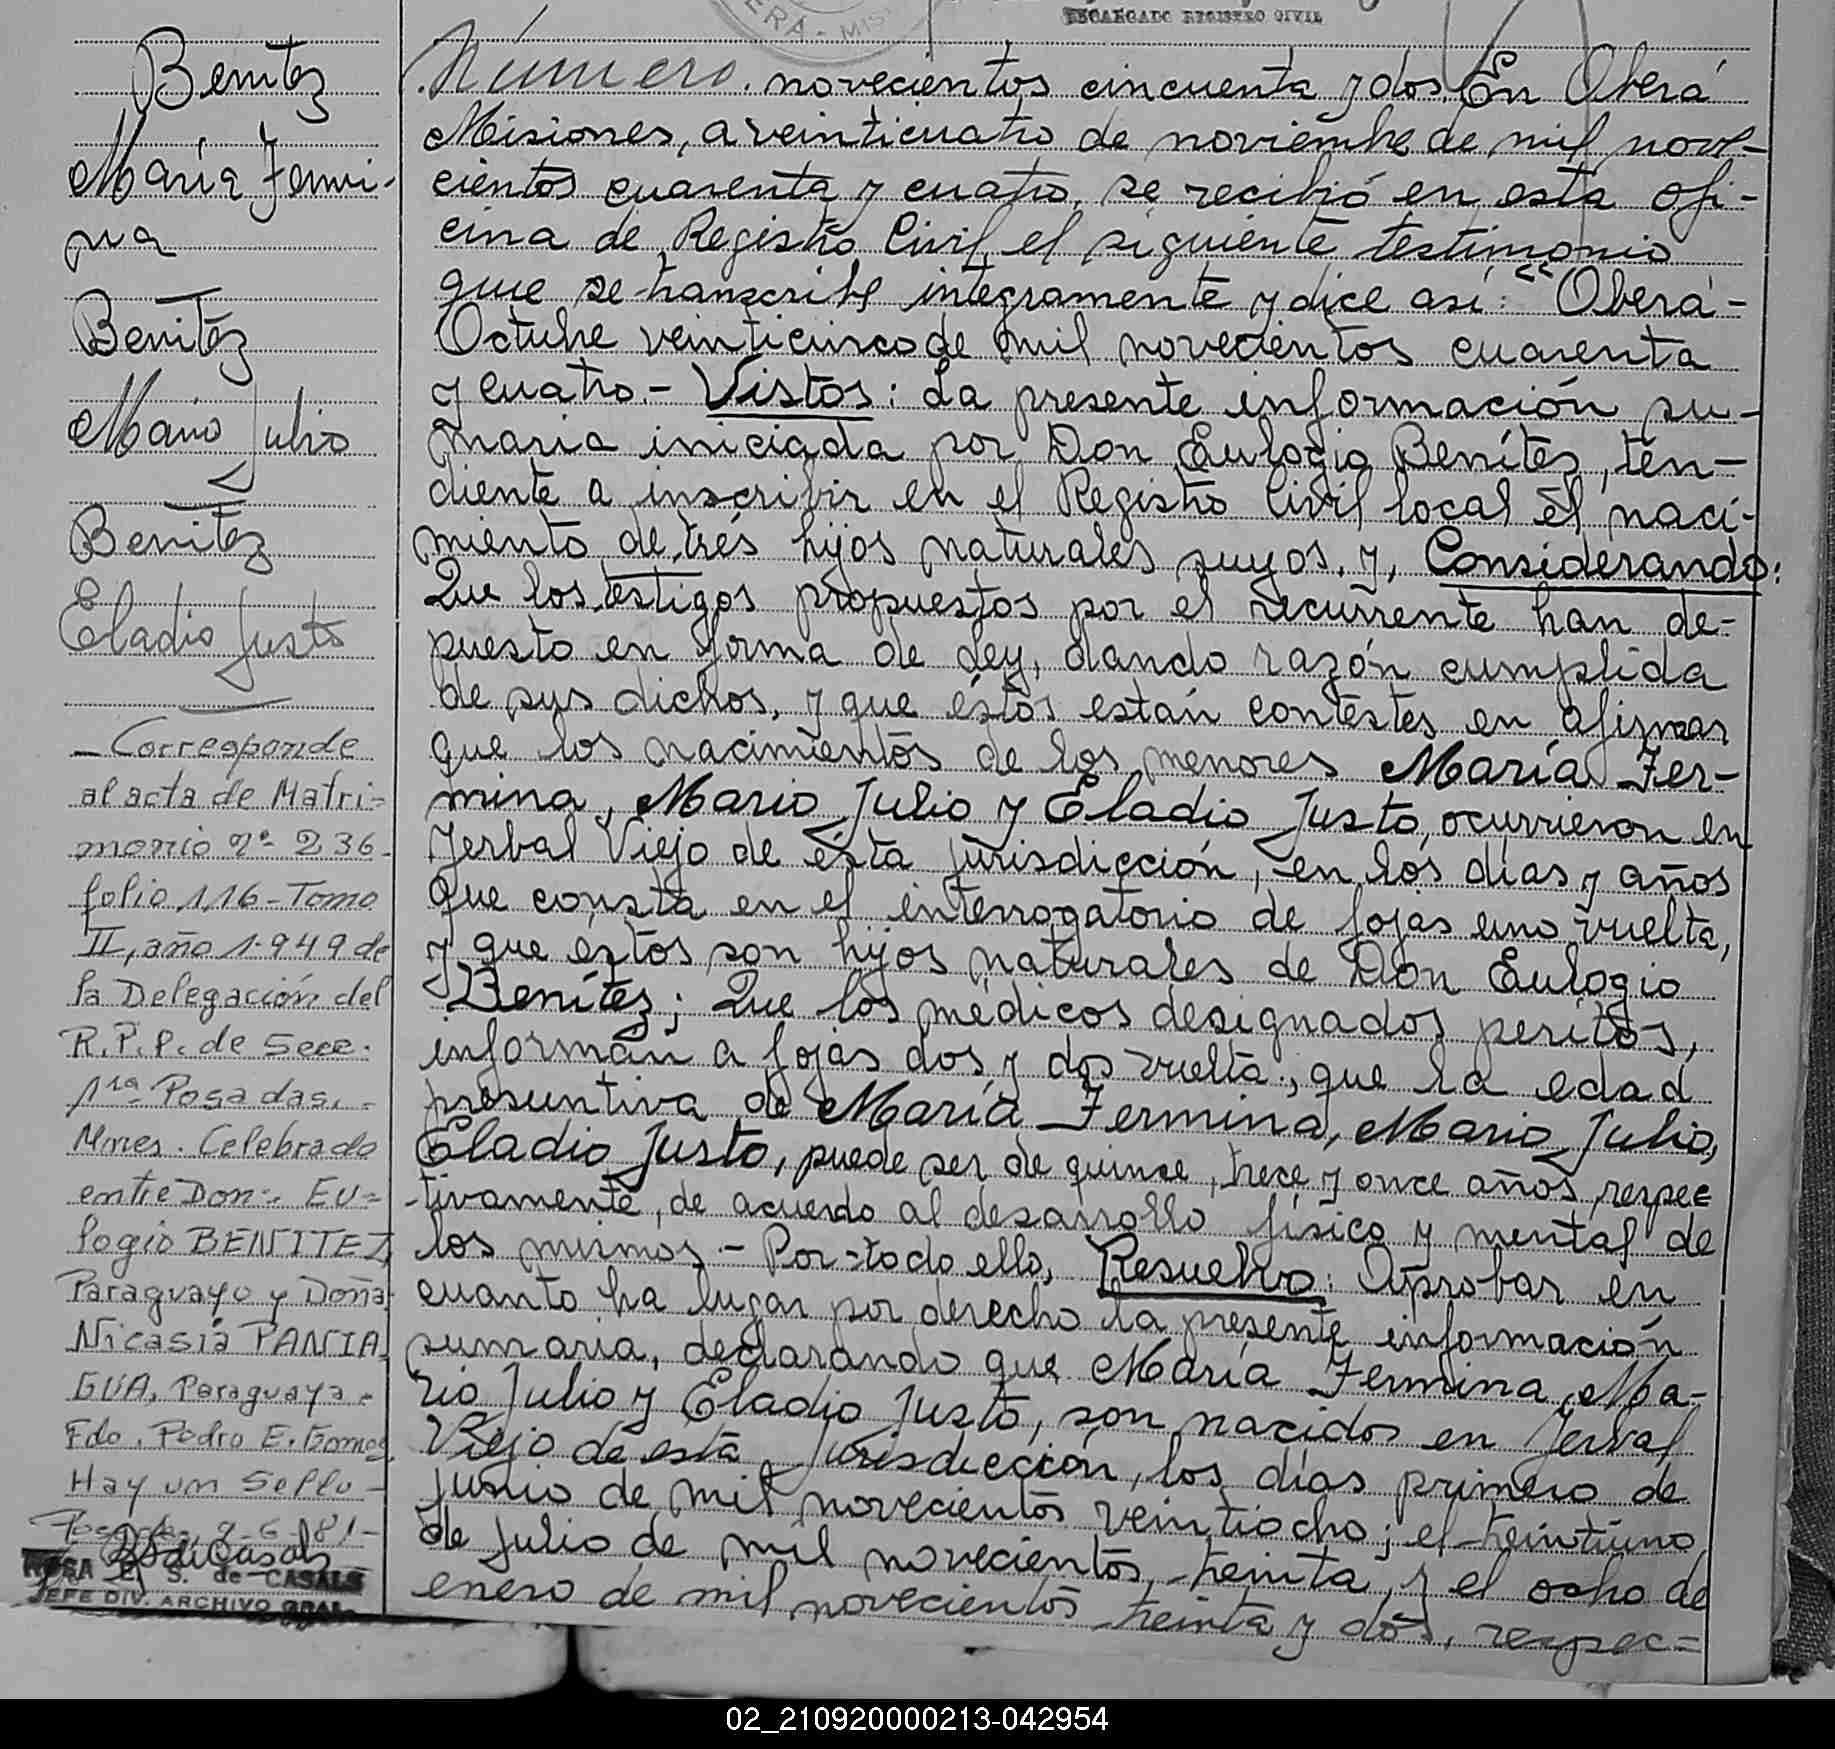 OBERA - MIS
ENCARGADO REGISTRO CIVIL
Benitez
María Fermi-
na
Benitez
Mario Julio
Benitez
Eladio Justo
- Corresponde
al acta de Matri=
monio nº 236-
folio 116 - Tomo
II, año 1.949 de
la Delegación del
R.P.P. de Secc.
1ra Posadas. -
Mnes. Celebrado
entre Don: Eu=
logio BENITEZ
Paraguayo y Doña
Nicasia PANIA
GUA, Paraguaya -
Fdo. Pedro E. Gomez
Hay un Sello -
Posadas 9-6-81-
ROSA E. S. de CASALS
JEFE DIV. ARCHIVO GRAL.
Número novecientos cincuenta y dos. En Oberá
Misiones, a veinticuatro de noviembre de mil nove-
cientos cuarenta y cuatro, se recibió en esta ofi-
cina de Registro Civil, el siguiente testimonio
que se transcribe integramente y dice así: "Oberá-
Octubre veinticinco de mil novecientos cuarenta
y cuatro.- Vistos: La presente información su-
maria iniciada por Don Eulogio Benítez, ten-
diente a inscribir en el Registro Civil local el naci-
miento de trés hijos naturales suyos, y, Considerando:
Que los testigos propuestos por el recurrente han de-
puesto en forma de Ley, dando razón cumplida
de sus dichos, y que éstos están contestes en afirmar
que los nacimientos de los menores María Fer-
mina, Mario Julio y Eladio Justo, ocurrieron en
Yerbal Viejo de ésta jurisdicción, en los días y años
que consta en el interrogatorio de fojas uno vuelta,
y que éstos son hijos naturales de Don Eulogio
Benítez; Que los médicos designados peritos,
informan a fojas dos y dos vuelta, que la edad
presuntiva de María Fermina, Mario Julio,
Eladio Justo, puede ser de quince, trece y once años, respec
tivamente, de acuerdo al desarrollo físico y mental de
los mismos.- Por todo ello, Resuelvo: Aprobar en
cuanto ha lugar por derecho la presente información
sumaria, declarando que María Fermina, Ma-
rio Julio y Eladio Justo, son nacidos en Yerbal
Viejo de esta Jurisdicción, los días primero de
junio de mil novecientos veintiocho; el treintiuno
de julio de mil novecientos treinta, y el ocho de
enero de mil novecientos treinta y dos, respec-
02_210920000213-042954